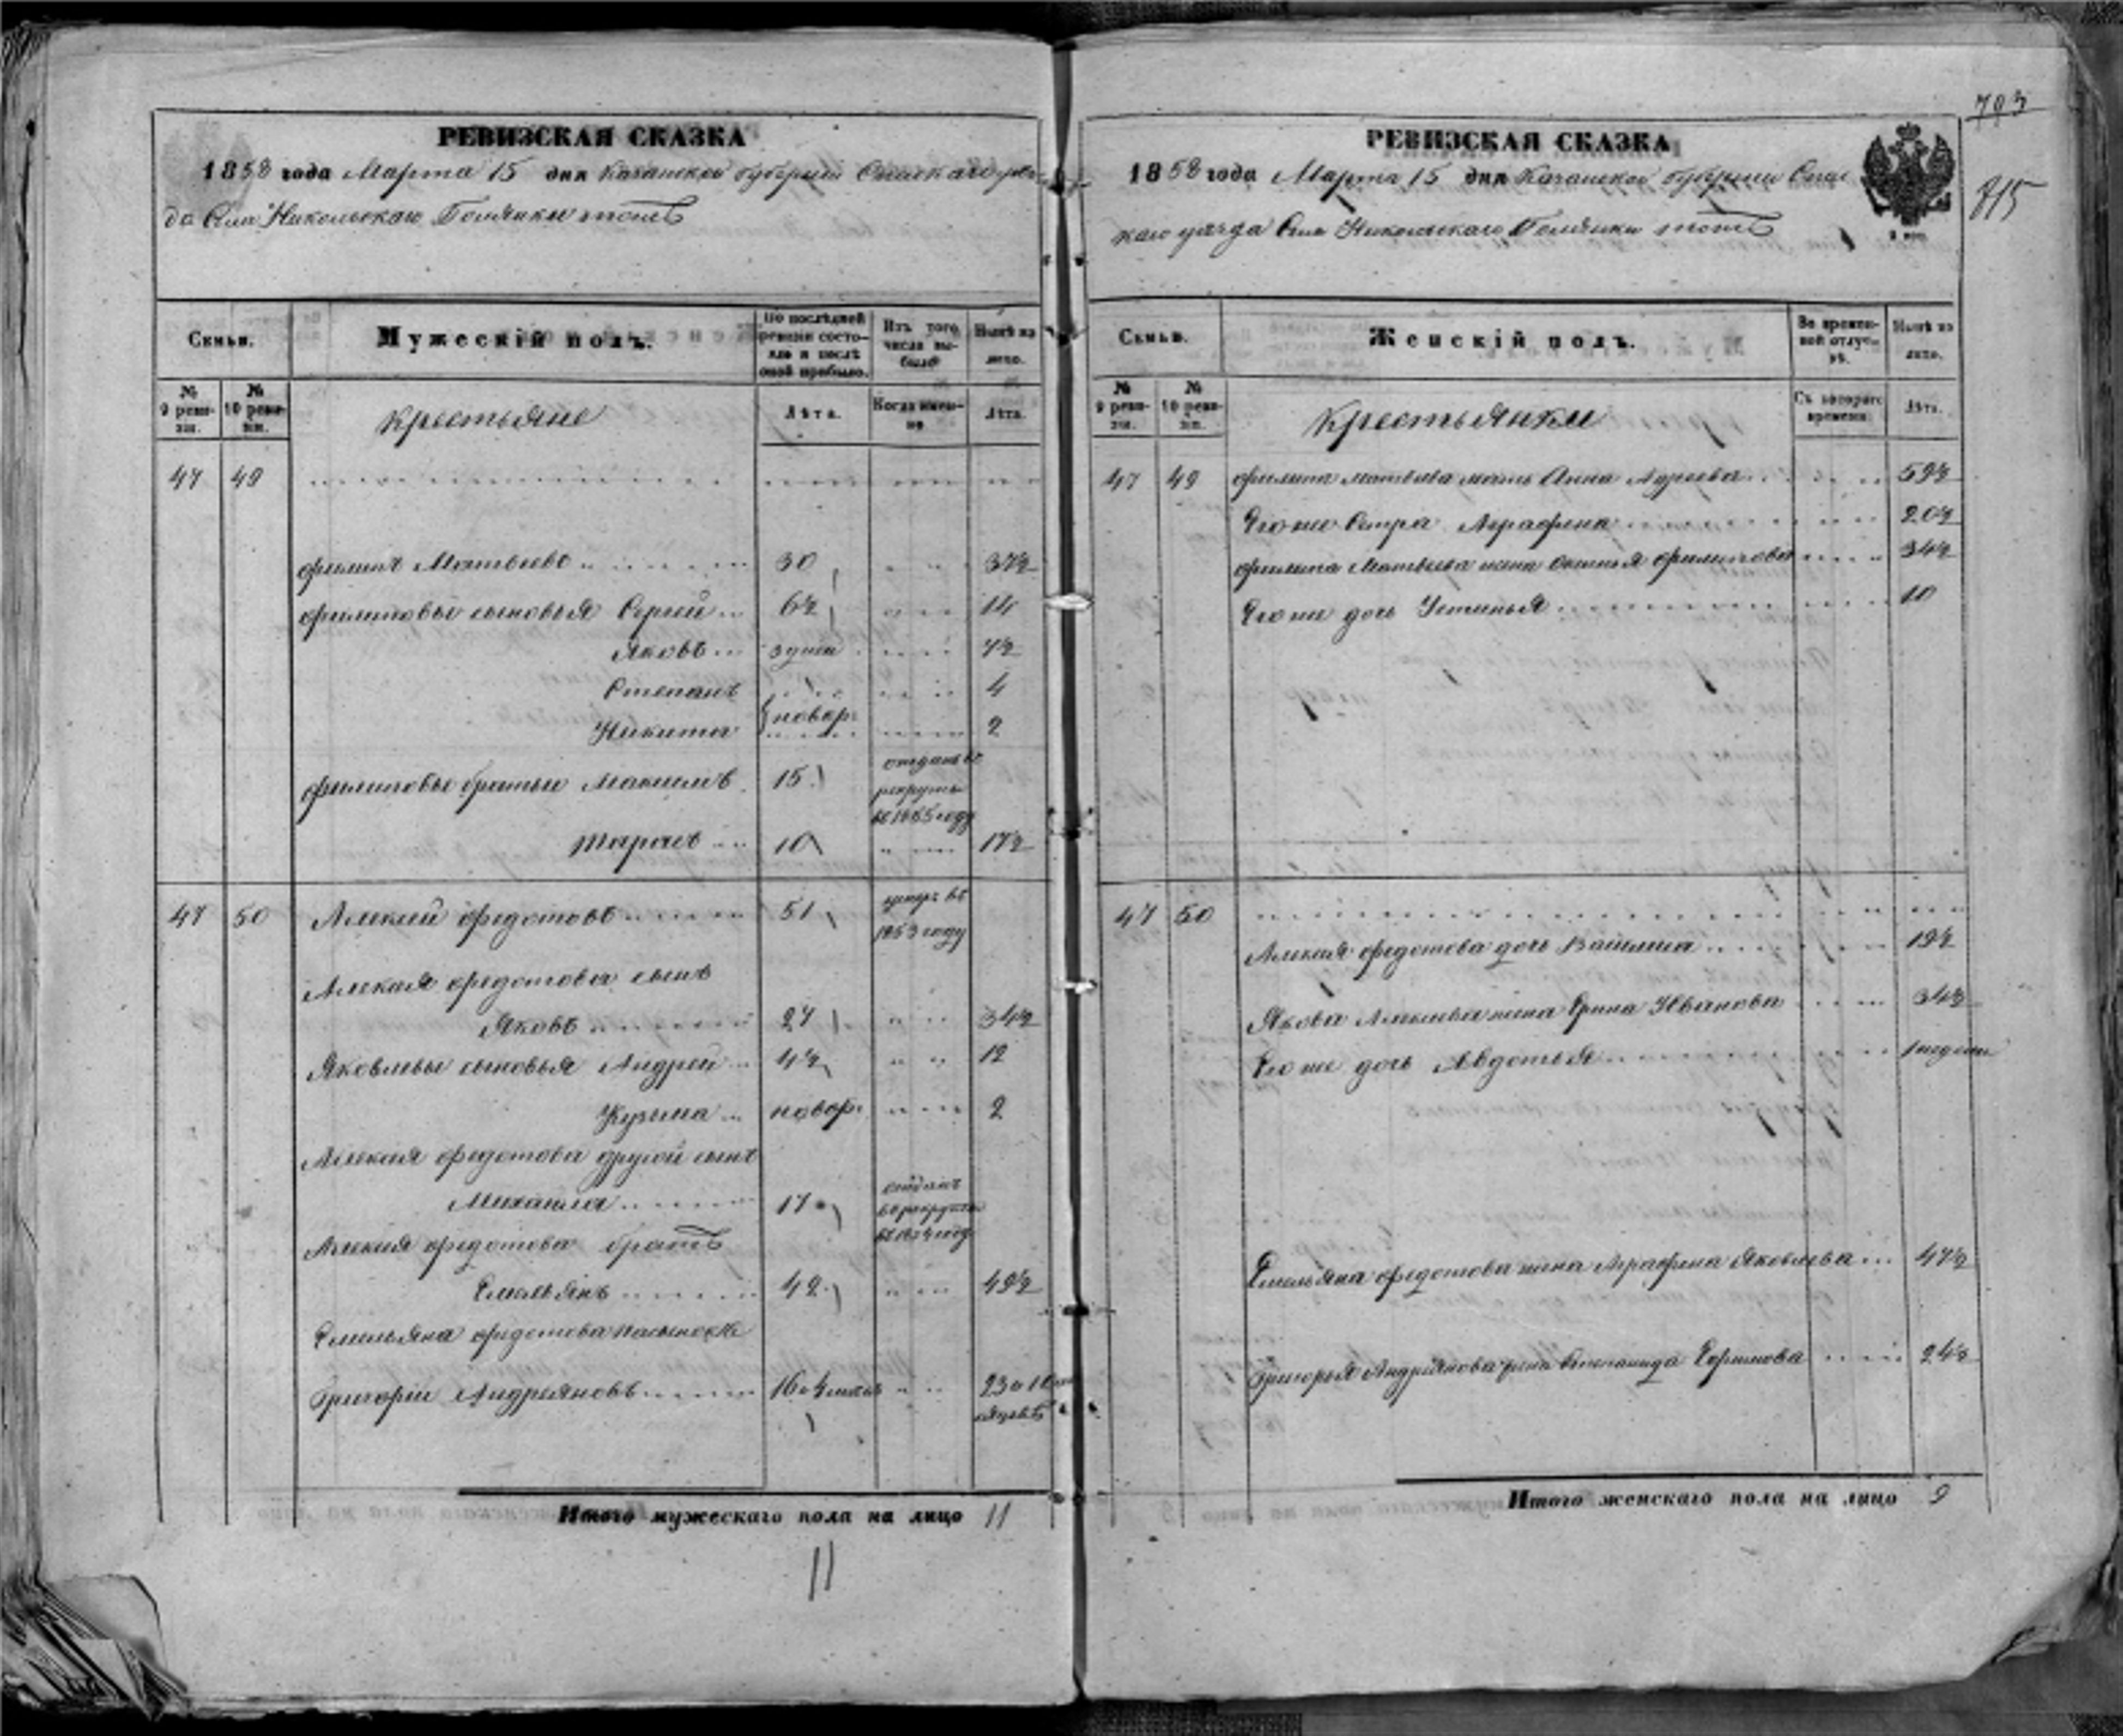 РЕВИЗСКАЯ СКАЗКА
1858 года Марта 15 дня Казанской губернии Спаскаго уез-
да Села Никольскаго Болянки тожъ
Семьи.
Мужескій полъ.
По послѣдней ревизіи состояло и послѣ оной прибыло.
Изъ того числа выбыло
Нынѣ на лицо.
№ 9 ревизіи.
№ 10 ревизіи.
крестьяне
Лѣта.
Когда именно
Лѣта.
47 49
филипъ Матвеевъ 30 37½
филиповы сыновья Сергей 6½ 14
Яковъ 3 дней 7½
Степанъ 4
новор:
Никита 2
филиповы братьи Максимъ 15 отданъ въ
рекруты
въ 1855 году
Тарасъ 10 17½
47 50 Алексей федотовъ 51 умеръ въ
1853 году
Алексея федотова сынъ
Яковъ 27 34½
Яковлевы сыновья Андрей 4½ 12
Кузьма новор. 2
Алексея федотова другой сынъ
Михаила 17 отданъ
в рекруты
Алексея федотова братъ
Емельянъ 42 49½
Емельяна федотова пасынокъ
Григорий Андрияновъ 16 23 и 10
Итого мужескаго пола на лицо 11
11
793
715
РЕВИЗСКАЯ СКАЗКА
1858 года Марта 15 дня Казанской губернии Спас
каго уезда Села Никольскаго Болянки тожъ
Семьи.
Женскій полъ.
Во временной отлучкѣ.
Нынѣ на лицо.
№ 9 ревизіи.
№ 10 ревизіи.
Крестьянки
Съ котораго времени.
Лѣта.
47 49 филипа матвеева мать Анна 59½
Его же Сестра Аграфена 20½
филипа Матвеева жена Аксинья филипова 34½
Его же дочь Устинья 10
47 50
Алексея федотова дочь Василиса 19½
Якова Алексеева жена Ерина Иванова 34½
Его же дочь Авдотья 1 недели
Емельяна федотова жена Аграфена Яковлева 47½
Григорья Андриянова жена Степанида Ефимова 24½
Итого женскаго пола на лицо 9